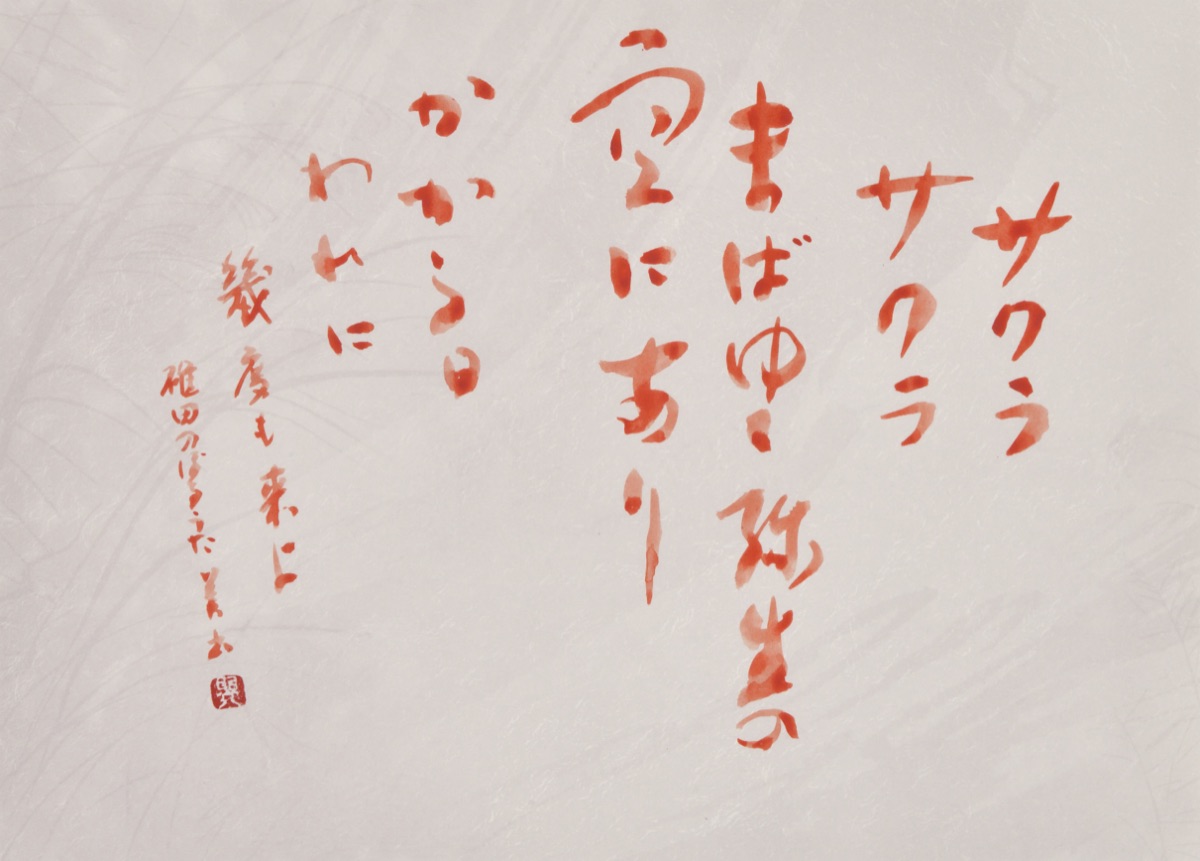 サクラ
サクラ
まばゆき弥生の
空にあり
かかる日
われに
幾度も来よ
碓田のぼるうた